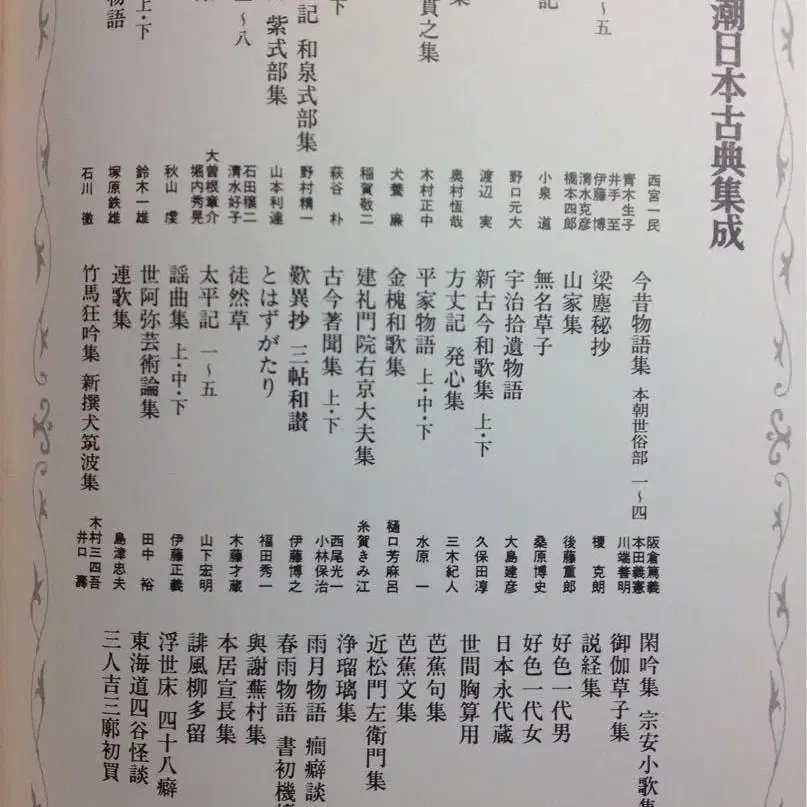 潮日本古典集成
〜五
記
集
貫之集
下
記 和泉式部集
紫式部集
〜八
上・下
物語
西宮一民
青木生子
井手 至
伊藤 博
清水克彦
橋本四郎
小泉 道
野口元大
渡辺 実
奥村恆哉
木村正中
犬養 廉
稲賀敬二
萩谷 朴
野村精一
山本利達
石田穣二
清水好子
大曽根章介
堀内秀晃
秋山 虔
鈴木一雄
塚原鉄雄
石川 徹
今昔物語集 本朝世俗部 一〜四
梁塵秘抄
山家集
無名草子
宇治拾遺物語
新古今和歌集 上・下
方丈記 発心集
平家物語 上・中・下
金槐和歌集
建礼門院右京大夫集
古今著聞集 上・下
歎異抄 三帖和讃
とはずがたり
徒然草
太平記 一〜五
謡曲集 上・中・下
世阿弥芸術論集
連歌集
竹馬狂吟集 新撰犬筑波集
阪倉篤義
本田義憲
川端善明
榎 克朗
後藤重郎
桑原博史
大島建彦
久保田淳
三木紀人
水原 一
樋口芳麻呂
糸賀きみ江
西尾光一
小林保治
伊藤博之
福田秀一
木藤才蔵
山下宏明
伊藤正義
田中 裕
島津忠夫
木村三四吾
井口 壽
閑吟集 宗安小歌集
御伽草子集
説経集
好色一代男
好色一代女
日本永代蔵
世間胸算用
芭蕉句集
芭蕉文集
近松門左衛門集
浄瑠璃集
雨月物語 癇癖談
春雨物語 書初機
與謝蕪村集
本居宣長集
誹風柳多留
浮世床 四十八癖
東海道四谷怪談
三人吉三廓初買